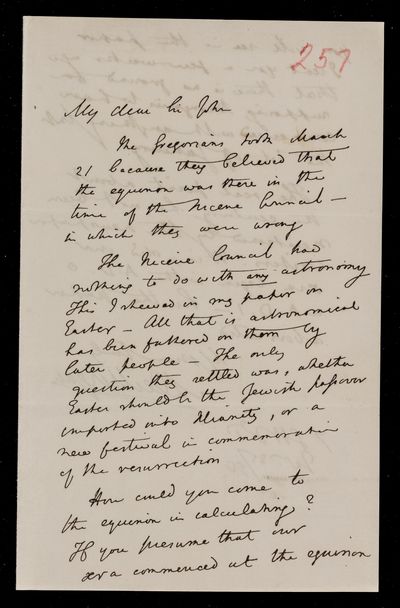 257
My dear Sir John
The Gregorians took March
21 because they believed that
the equinox was there in the
time of the Nicene Council —
in which they were wrong
The Nicene Council had
nothing to do with any astronomy
This I shewed in my paper on
Easter — All that is astronomical
has been fathered on them by
later people — The only
question they settled was, whether
Easter should be the Jewish passover
imported into Xtianity, or a
new festival in commemoration
of the resurrection
How could you come to
the equinox in calculating?
If you presume that our
æra commenced at the equinox